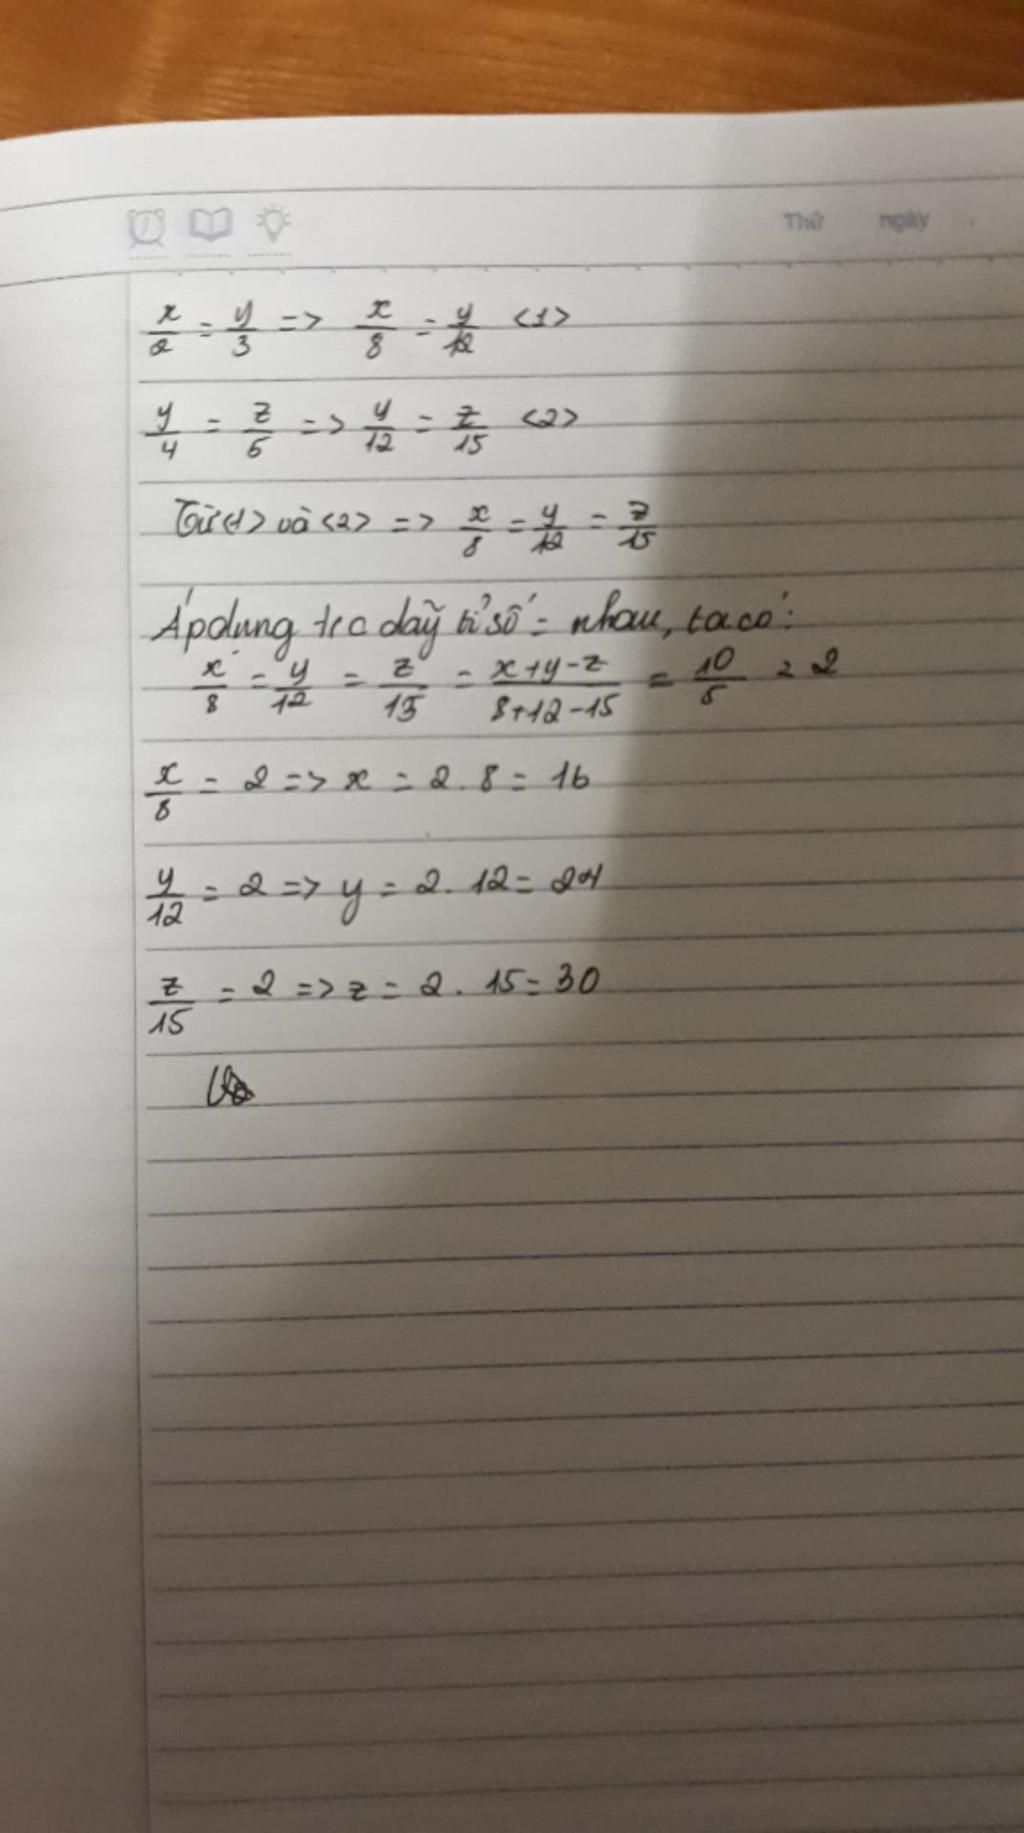 Thứ ngày
x/2 = y/3 => x/8 = y/12 <1>
y/4 = z/5 => y/12 = z/15 <2>
Từ <1> và <2> => x/8 = y/12 = z/15
Áp dụng t/c dãy tỉ số = nhau, ta có:
x/8 = y/12 = z/15 = x+y-z/8+12-15 = 10/5 = 2
x/8 = 2 => x = 2.8 = 16
y/12 = 2 => y = 2.12 = 24
z/15 = 2 => z = 2.15 = 30